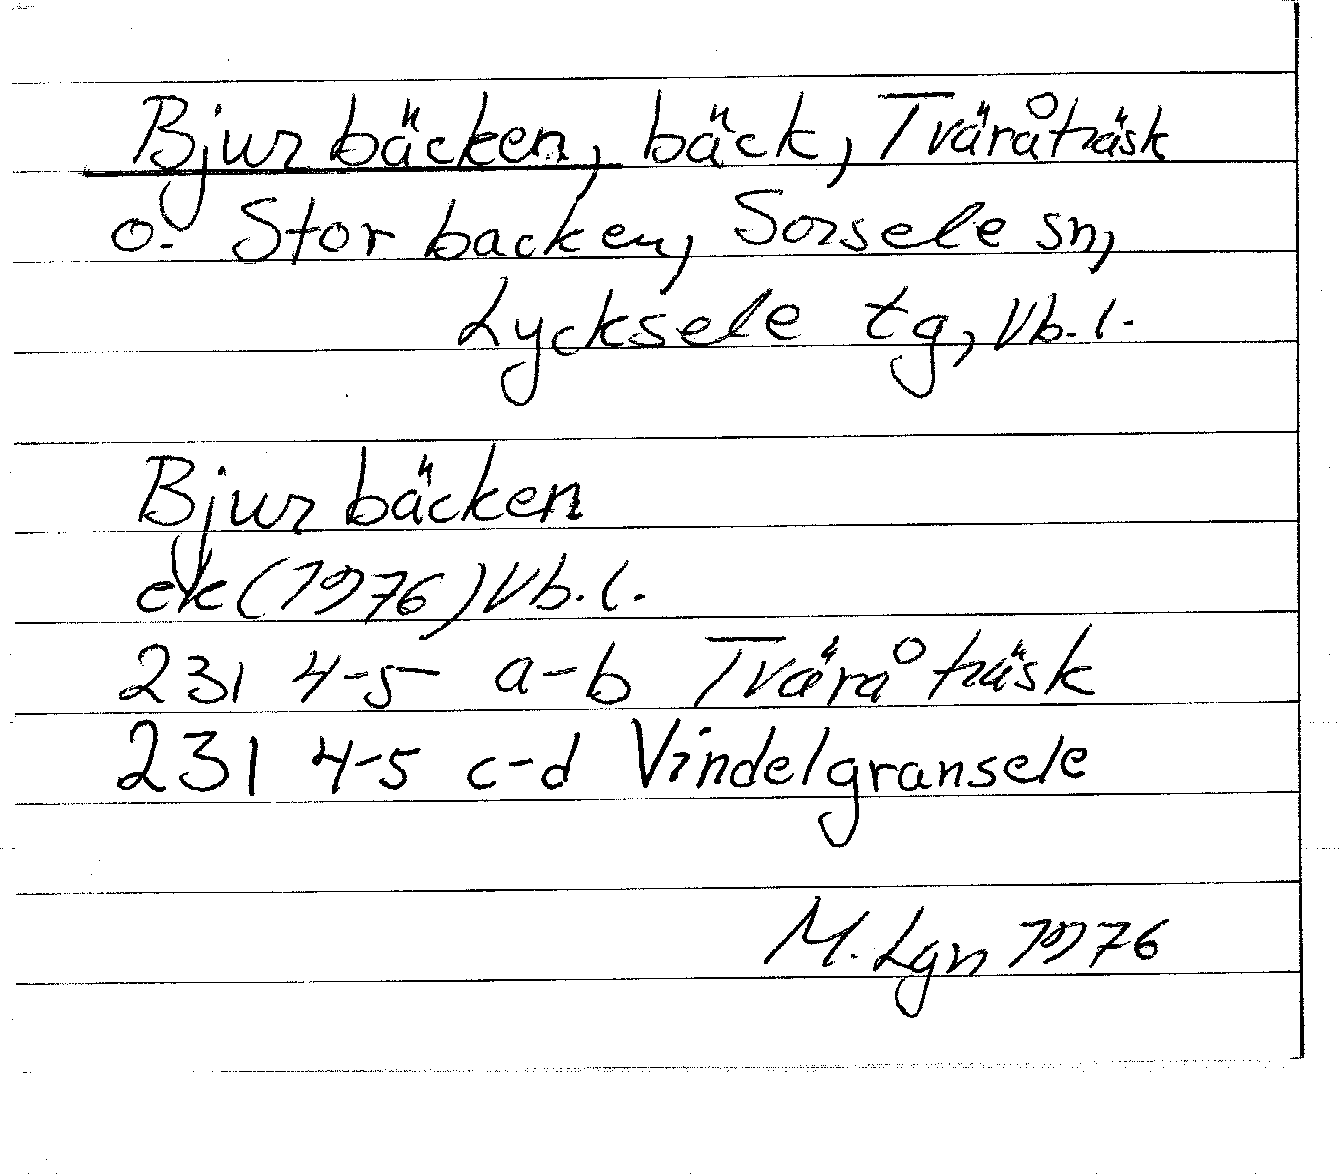 Bjurbäcken, bäck, Tväråträsk
o. Storbacken, Sorsele sn,
Lycksele tg, Vb. l.
Bjurbäcken
ek (1976) Vb. l.
231 4-5 a-b Tväråträsk
231 4-5 c-d Vindelgransele
M. Lgn 1976